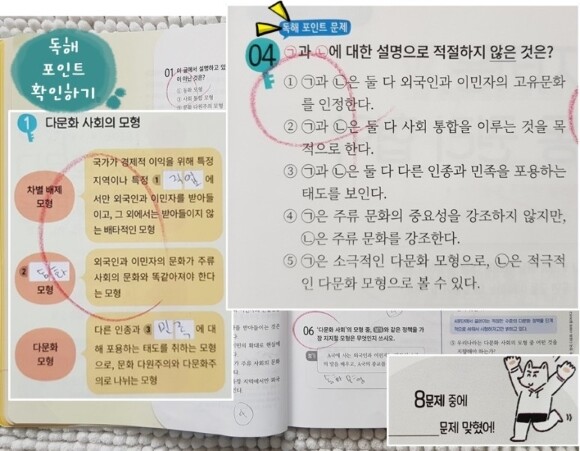 독해
포인트
확인하기
1 다문화 사회의 모형
차별 배제
모형
국가가 경제적 이익을 위해 특정
지역이나 특정 ① 직업 에
서만 외국인과 이민자를 받아들
이고, 그 외에서는 받아들이지 않
는 배타적인 모형
②
모형
외국인과 이민자의 문화가 주류
사회의 문화와 똑같아져야 한다
는 모형
다문화
모형
다른 인종과 ③ 민족 에 대
해 포용하는 태도를 취하는 모형
으로, 문화 다원주의와 다문화주
의로 나뉘는 모형
01 이 글에서 설명하고 있
이 아닌 것은?
① 동화 모형
② 차별 배제 모형
독해 포인트 문제
04 ㉠과 ㉡에 대한 설명으로 적절하지 않은 것은?
① ㉠과 ㉡은 둘 다 외국인과 이민자의 고유문화
를 인정한다.
② ㉠과 ㉡은 둘 다 사회 통합을 이루는 것을 목
적으로 한다.
③ ㉠과 ㉡은 둘 다 다른 인종과 민족을 포용하는
태도를 보인다.
④ ㉠은 주류 문화의 중요성을 강조하지 않지만,
㉡은 주류 문화를 강조한다.
⑤ ㉠은 소극적인 다문화 모형으로, ㉡은 적극적
인 다문화 모형으로 볼 수 있다.
06 '다문화 사회'의 모형 중, 와 같은 정책을 가
장 지지할 모형은 무엇인지 쓰시오.
8문제 중에
문제 맞혔어!